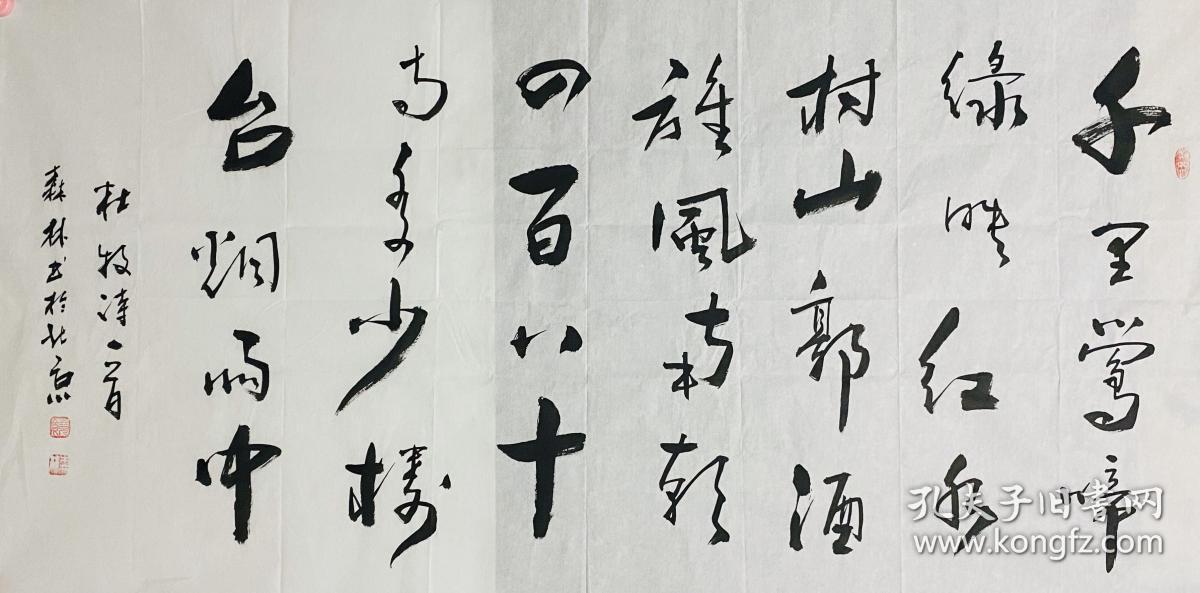 千里鶯啼
綠映紅水
村山郭酒
旗風南朝
四百八十
寺多少樓
台烟雨中
杜牧詩一首
森林书於北京
孔夫子旧書网
www.kongfz.com